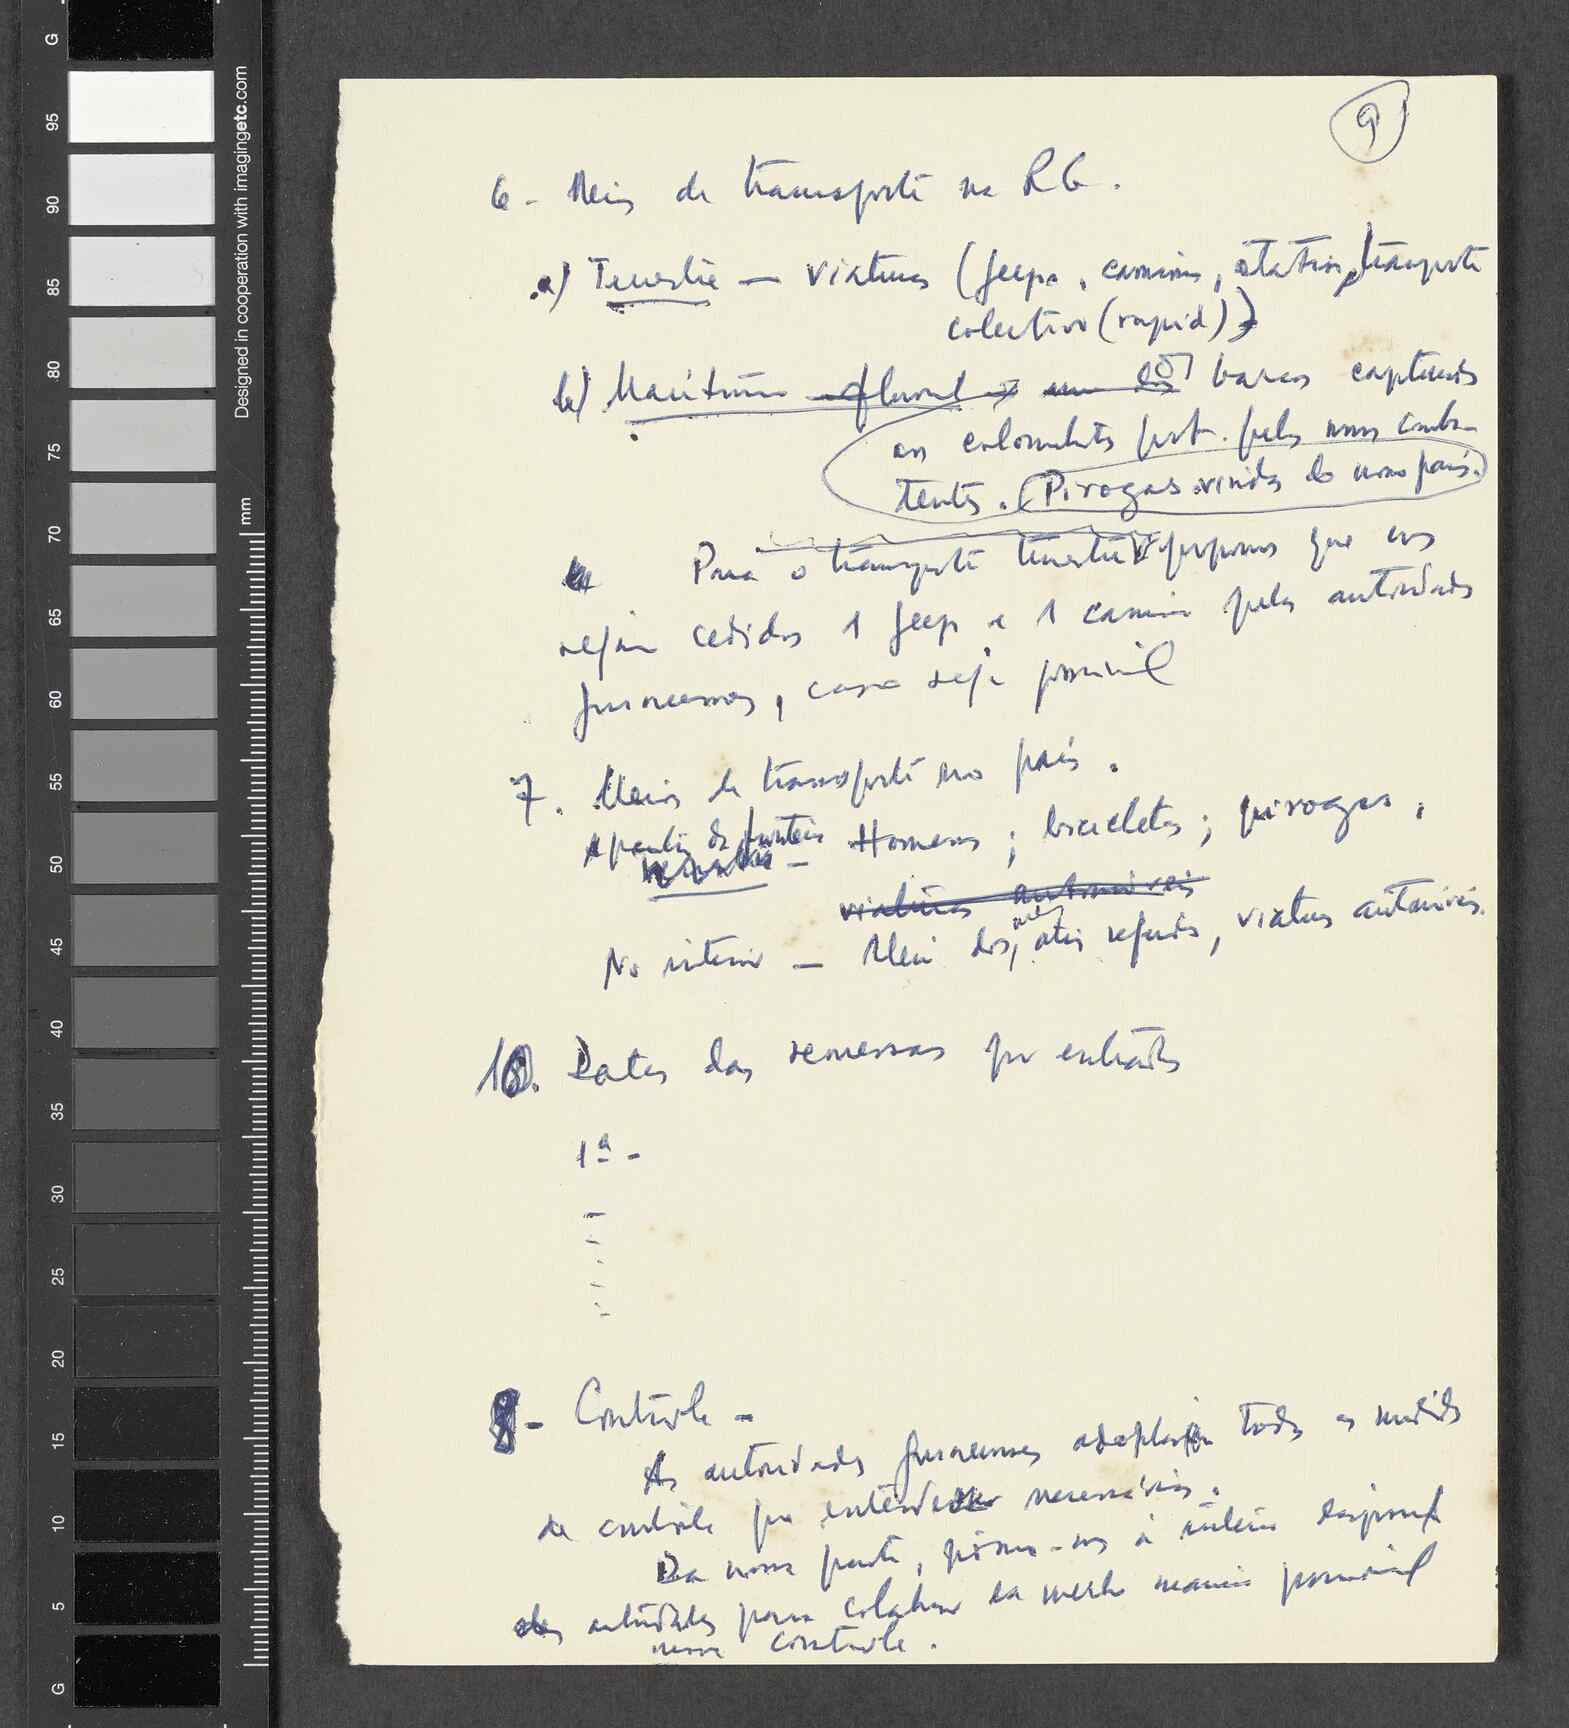 9
6 - Meios de transporte na R.G.
a) Terrestre — viaturas (jeeps, camions, station, transporte
colectivo (rapid))
b) Marítimo - fluvial - os barcos capturados
aos colonialistas port. pelos nossos comba-
tentes. (Pirogas vindas do nosso país.)
Para o transporte terrestre propomos que nos
sejam cedidos 1 jeep e 1 camion pelas autoridades
guineenses, caso seja possível
7. Meios de transporte no país.
A partir da fronteira - Homens; bicicletas; pirogas,
viaturas automóveis
No interior — Meios dos, atrás referidos, viaturas automóveis.
10. Datas das remessas por entradas
1ª -
8 - Contrôle -
As autoridades guineenses adoptarão todas as medidas
de contrôle que entender necessárias.
Da nossa parte, pômo-nos à inteira disposição
das autoridades para colaborar da melhor maneira possível
nesse contrôle.